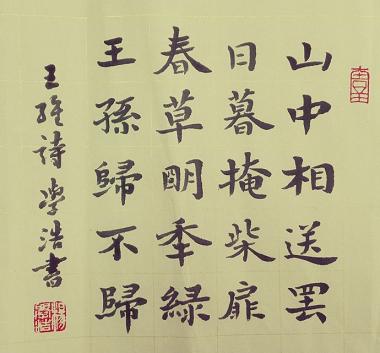 山中相送罷
日暮掩柴扉
春草眀秊綠
王孫歸不歸
王維詩學浩書